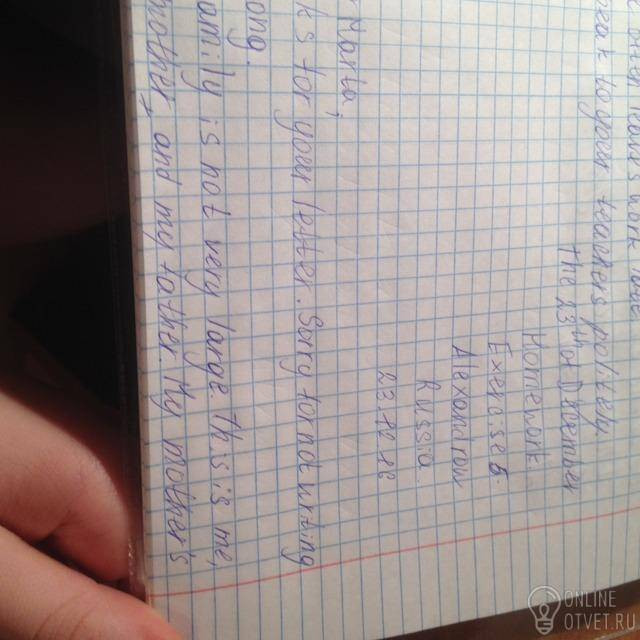 work
to your teachers politely.
The 23th of December
Homework
Exercise 6.
Alexandrov
Russia
ks for your letter. Sorry to not
ong.
amily is not very large. This is me,
mother, and my My mother's
ONLINE
OTVET.RU